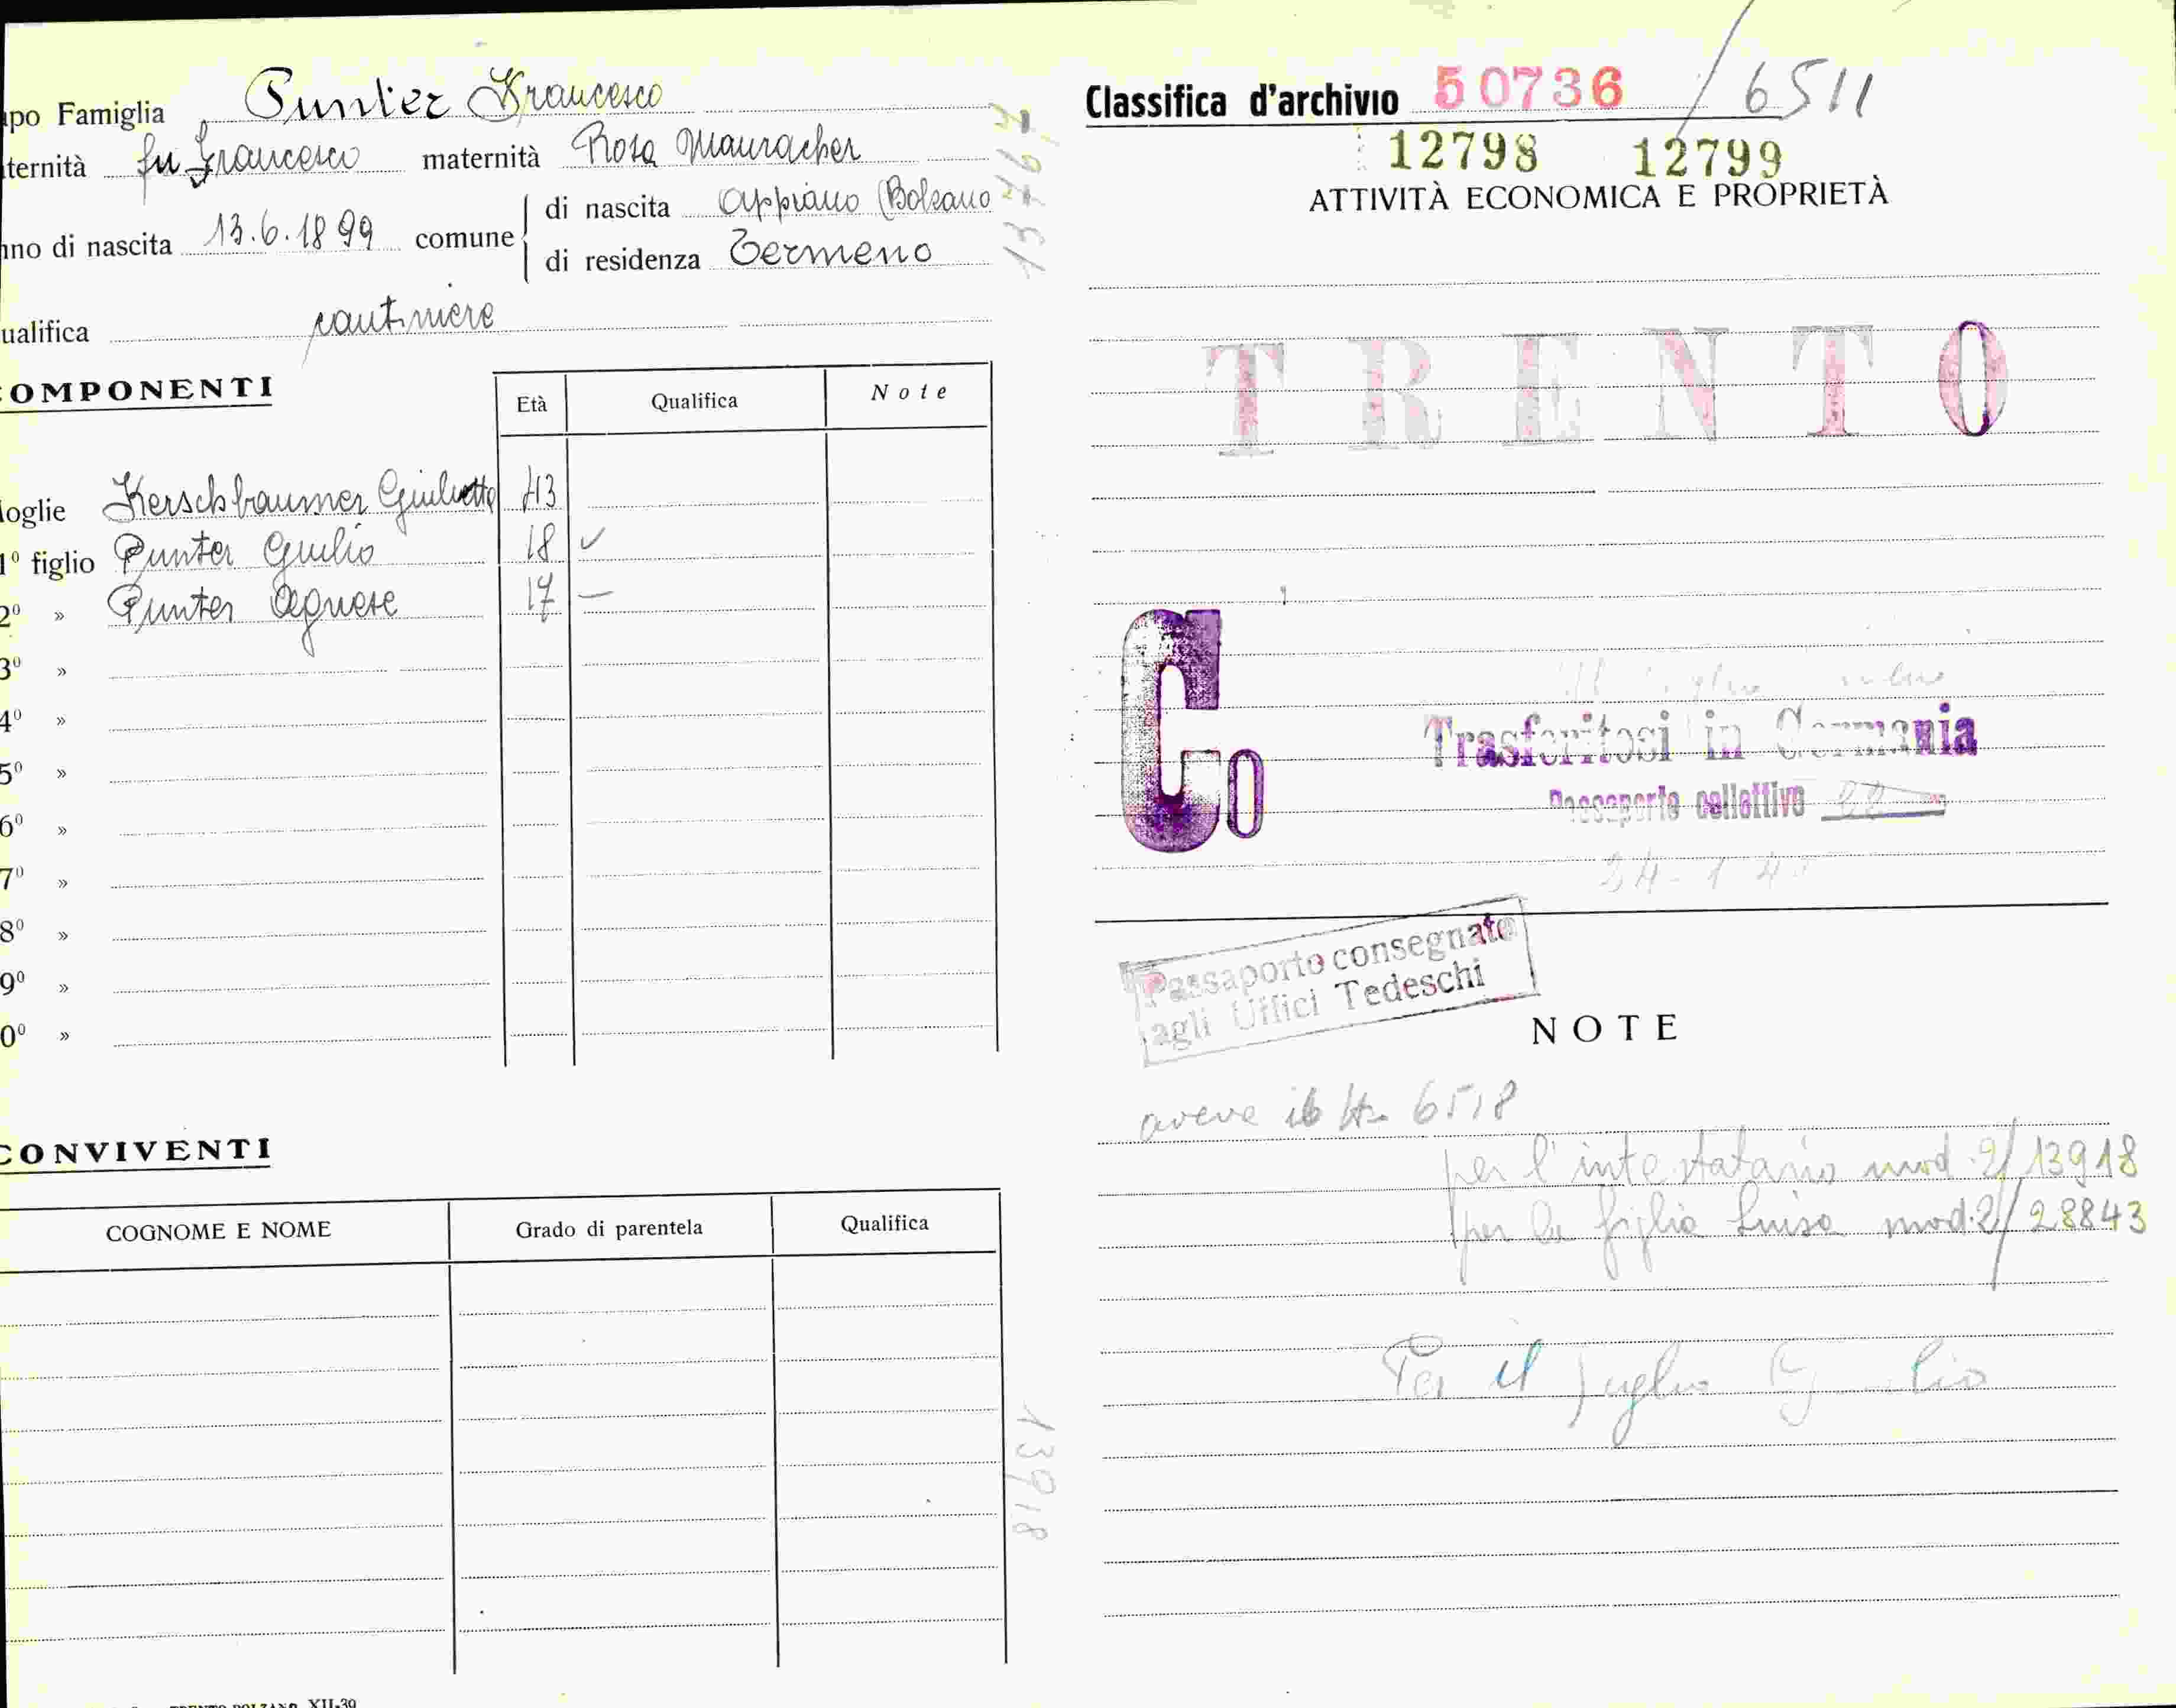 apo Famiglia Punter Francesco
ternità fu Francesco maternità Rosa Mauracher
nno di nascita 13.6.1899 comune di nascita Appiano (Bolzano
di residenza Termeno
ualifica cantiniere
COMPONENTI
Età Qualifica Note
loglie Kerschbaumer Giulietta 43
1º figlio Punter Giulio 18 ✓
2º » Punter Agnese 17 —
3º »
4º »
5º »
6º »
7º »
8º »
9º »
0º »
CONVIVENTI
COGNOME E NOME Grado di parentela Qualifica
TRENTO-BOLZANO XII-39
13918
Classifica d'archivio 50736 / 6511
12798 12799
ATTIVITÀ ECONOMICA E PROPRIETÀ
TRENTO
Co
Trasferitosi in Germania
Passaporto collettivo
Passaporto consegnato
agli Uffici Tedeschi
NOTE
aveva il 6518
per l'intestatario mod. 2/13918
per la figlia Luisa mod. 2/28843
Per il figlio Giulio